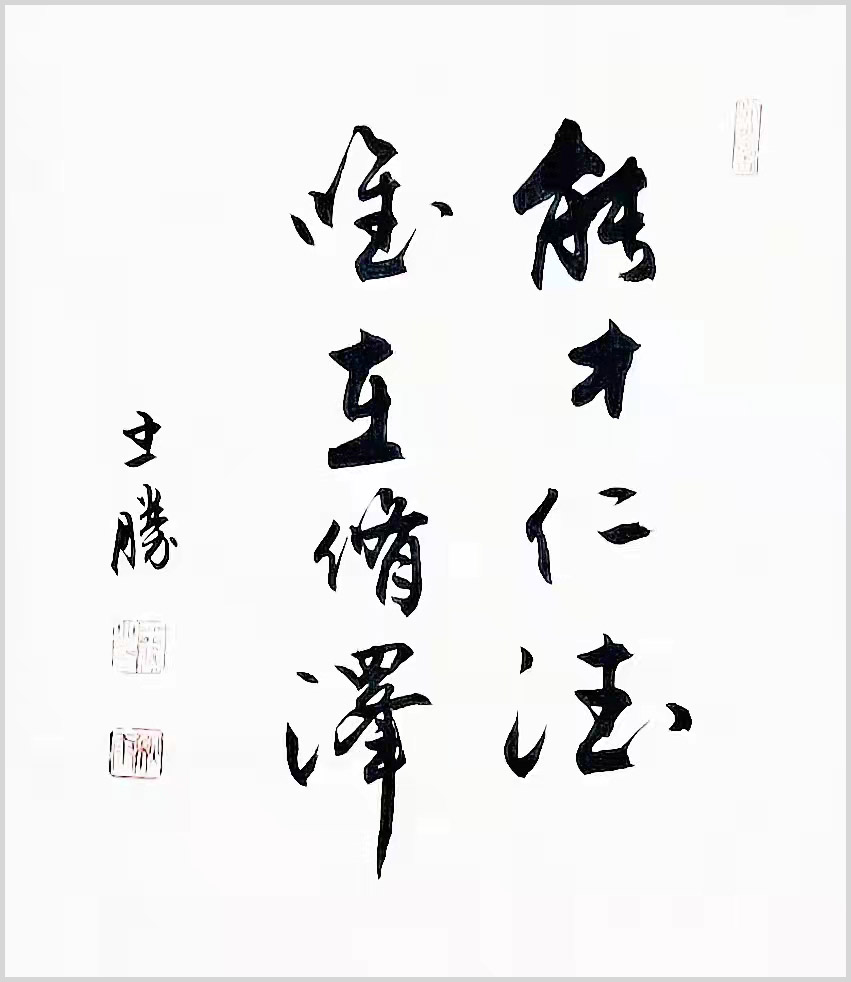 能才仁德
唯在脩澤
王勝